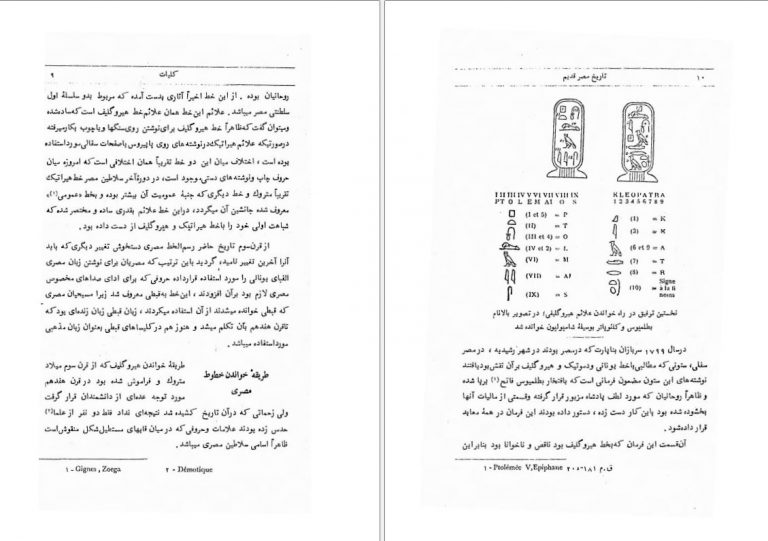 کلیات
۹
روحانیان بوده . از این خط اخیراً آثاری بدست آمده که مربوط بدو سلسلهٔ اول
سلطنتی مصر میباشد. علائم این خط همان علائم خط هیروگلیف است که ساده شده
ومیتوان گفت که ظاهراً خط هیروگلیف برای نوشتن روی سنگها و یا چوب بکار میرفته
درصورتیکه علائم هیراتیک در نوشته های روی پاپیروس یا صفحات سفالی مورد استفاده
بوده است ، اختلاف میان این دو خط تقریباً همان اختلافی است که امروزه میان
حروف چاپ و نوشته های دستی موجود است، در دورهٔ آخر سلاطین مصر خط هیراتیک
تقریباً متروک و خط دیگری که جنبهٔ عمومیت آن بیشتر بوده و بخط «عمومی (۲)»
معروف شده جانشین آن میگردد، در این خط علائم بقدری ساده و مختصر شده که
شباهت اولی خود را با خط هیراتیک و هیروگلیف از دست داده بود.
از قرن سوم تاریخ حاضر رسم الخط مصری دستخوش تغییر دیگری که باید
آنرا آخرین تغییر نامید، گردید باین ترتیب که مصریان برای نوشتن زبان مصری
الفبای یونانی را مورد استفاده قرار داده حروفی که برای ادای صداهای مخصوص
مصری لازم بود برآن افزودند ، این خط به قبطی معروف شد زیرا مسیحیان مصری
که قبطی خوانده میشدند از آن استفاده میکردند ، زبان قبطی زبان زنده ای بود که
تا قرن هفدهم بآن تکلم میشد و هنوز هم در کلیساهای قبطی بعنوان زبان مذهبی
مورد استفاده میباشد.
طریقهٔ خواندن خطوط
مصری
طریقهٔ خواندن هیروگلیف که از قرن سوم میلاد
متروک و فراموش شده بود در قرن هفدهم
مورد توجه عده ای از دانشمندان قرار گرفت
ولی زحماتی که در آن تاریخ کشیده شد نتیجه ای نداد فقط دو نفر از علماء (۱)
حدس زده بودند علامات و حروفی که در میان قابهای مستطیل شکل منقوش است
ظاهراً اسامی سلاطین مصری میباشد.
۱ - Gignes , Zoega
۲ - Démotique
تاریخ مصر قدیم
۱۰
I II III IV V VI VII VIII IX
PT O L E M AI O S
KLEOPATRA
1 2 3 4 5 6 7 8 9
(I et 5) = P
(II) = T
(III et 4) = O
(IV et 2) = L
(VI) = M
(VII) = AI
(IX) = S
(1) = K
(6 et 9 = A
(7) = T
(8) = R
(10) = Signe
à la fi
noms
نخستین توفیق در راه خواندن علائم هیروگلیفی؛ در تصویر بالا نام
بطلمیوس و کلئوپاتر بوسیلهٔ شامپولیون خوانده شد
در سال ۱۷۹۹ سربازان بناپارت که در مصر بودند در شهر رشیدیه ، در مصر
سفلی، ستونی که مطالبی با خط یونانی و دموتیک و هیروگلیف برآن نقش بود یافتند
نوشته های این ستون مضمون فرمانی است که بافتخار بطلمیوس فاتح (۱) برپا شده
و ظاهراً روحانیان که مورد لطف پادشاه مزبور قرار گرفته و قسمتی از مالیات آنها
بخشوده شده بود باین کار دست زده ، دستور داده بودند این فرمان در همهٔ معابد
قرار داده شود.
آن قسمت این فرمان که بخط هیروگلیف بود ناقص و ناخوانا بود بنابراین
۱ - Ptolémée V, Epiphane ۲۰۵-۱۸۱ ق.م